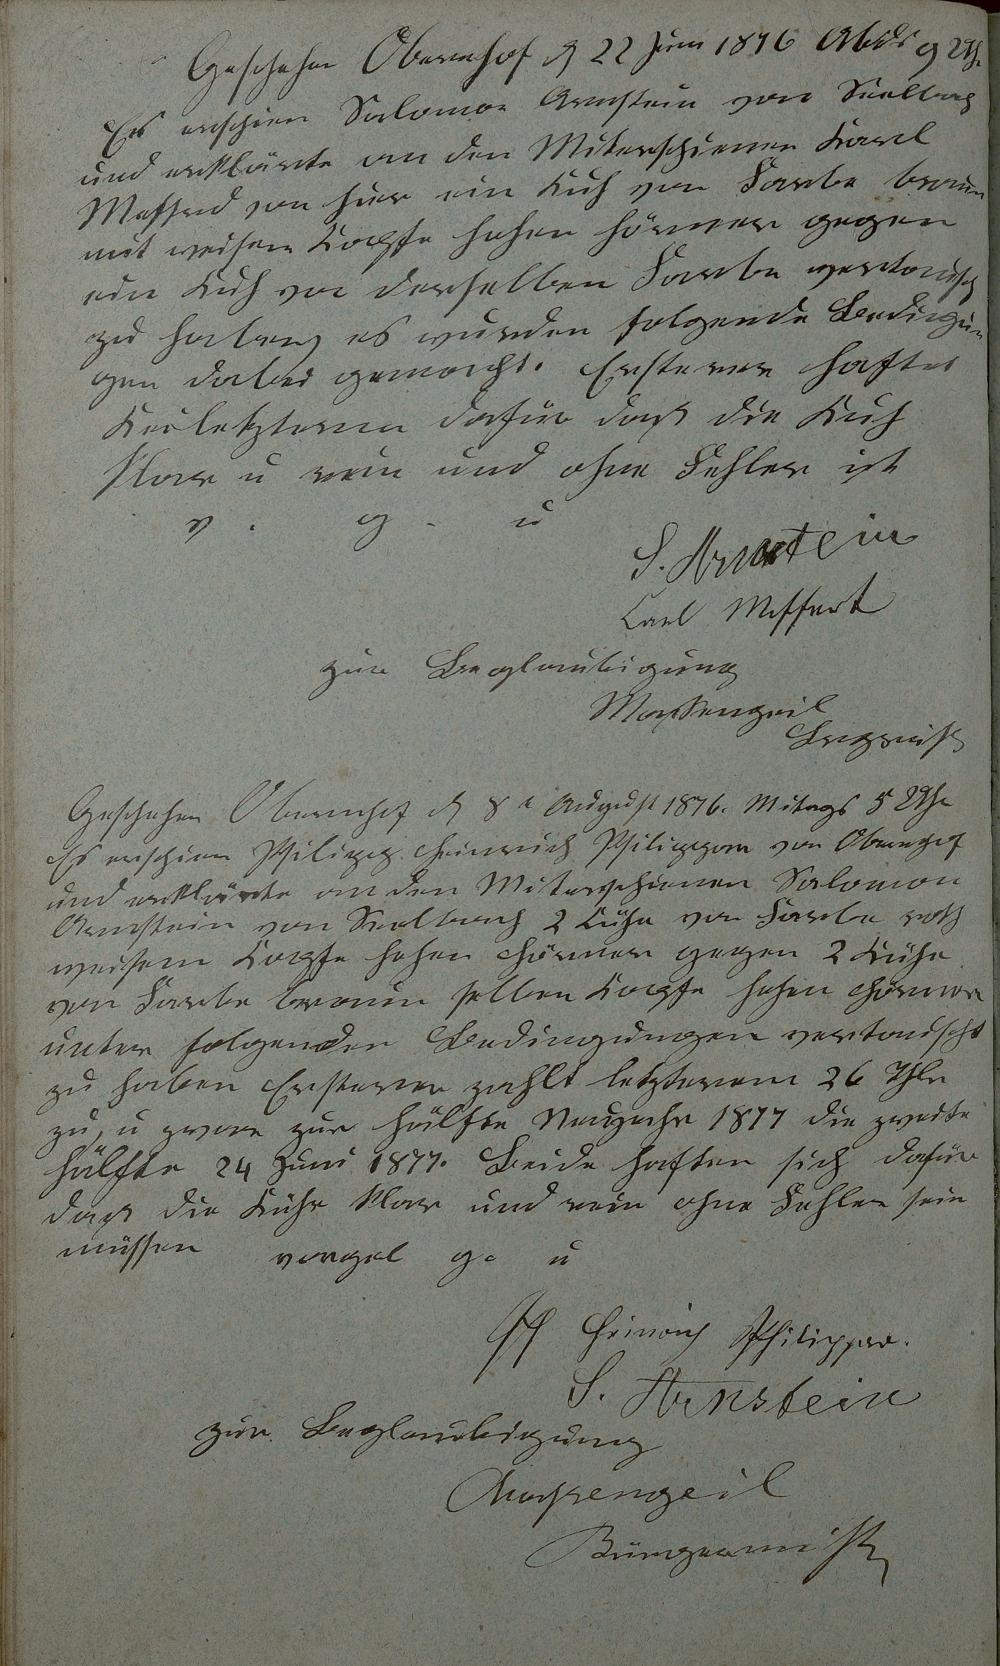 Geschehen Obernhof d 22 Juni 1876 Abds 9 Uh
Es erschien Salomon Arnstein von Seelbach
und erklärte an den Miterschienen Karl
Meffert von hier ein Kuh von Farbe braun
mit weisem Kopfe hohen Hörner gegen
ein Kuh von derselben Farbe vertausch
zu haben, es wurden folgende Bedingun
gen dabei gemacht. Ersterer haftet
letzterem dafür daß die Kuh
klar u rein und ohne Fehler ist
v. g. u
S. Arnstein
Carl Meffert
zur Beglaubigung
Massengeil
Geschehen Obernhof d 8t August 1876. Mitags 5 Uhr
Es erschien Philipp Heinrich Philippar von Obernhof
und erklärte an den Miterschienen Salomon
Arnstein von Seelbach 2 Kühe von Farbe roth
weisem Kopfe hohen Hörner gegen 2 Kühe
von Farbe braun selben Kopfe hohen Hörner
unter folgenden Bedingungen vertauscht
zu haben Ersterer zahlt letzterem 26 Thlr
zu, u zwar zur Hälfte Neujahr 1877 die zweite
Hälfte 24 Juni 1877. Beide haften sich dafür
daß die Kühe klar und rein ohne Fehler sein
müssen vorgel g. u
Ph Heinrich Philippar.
S. Arnstein
zur Beglaubigung
Massengeil
Bürgermstr